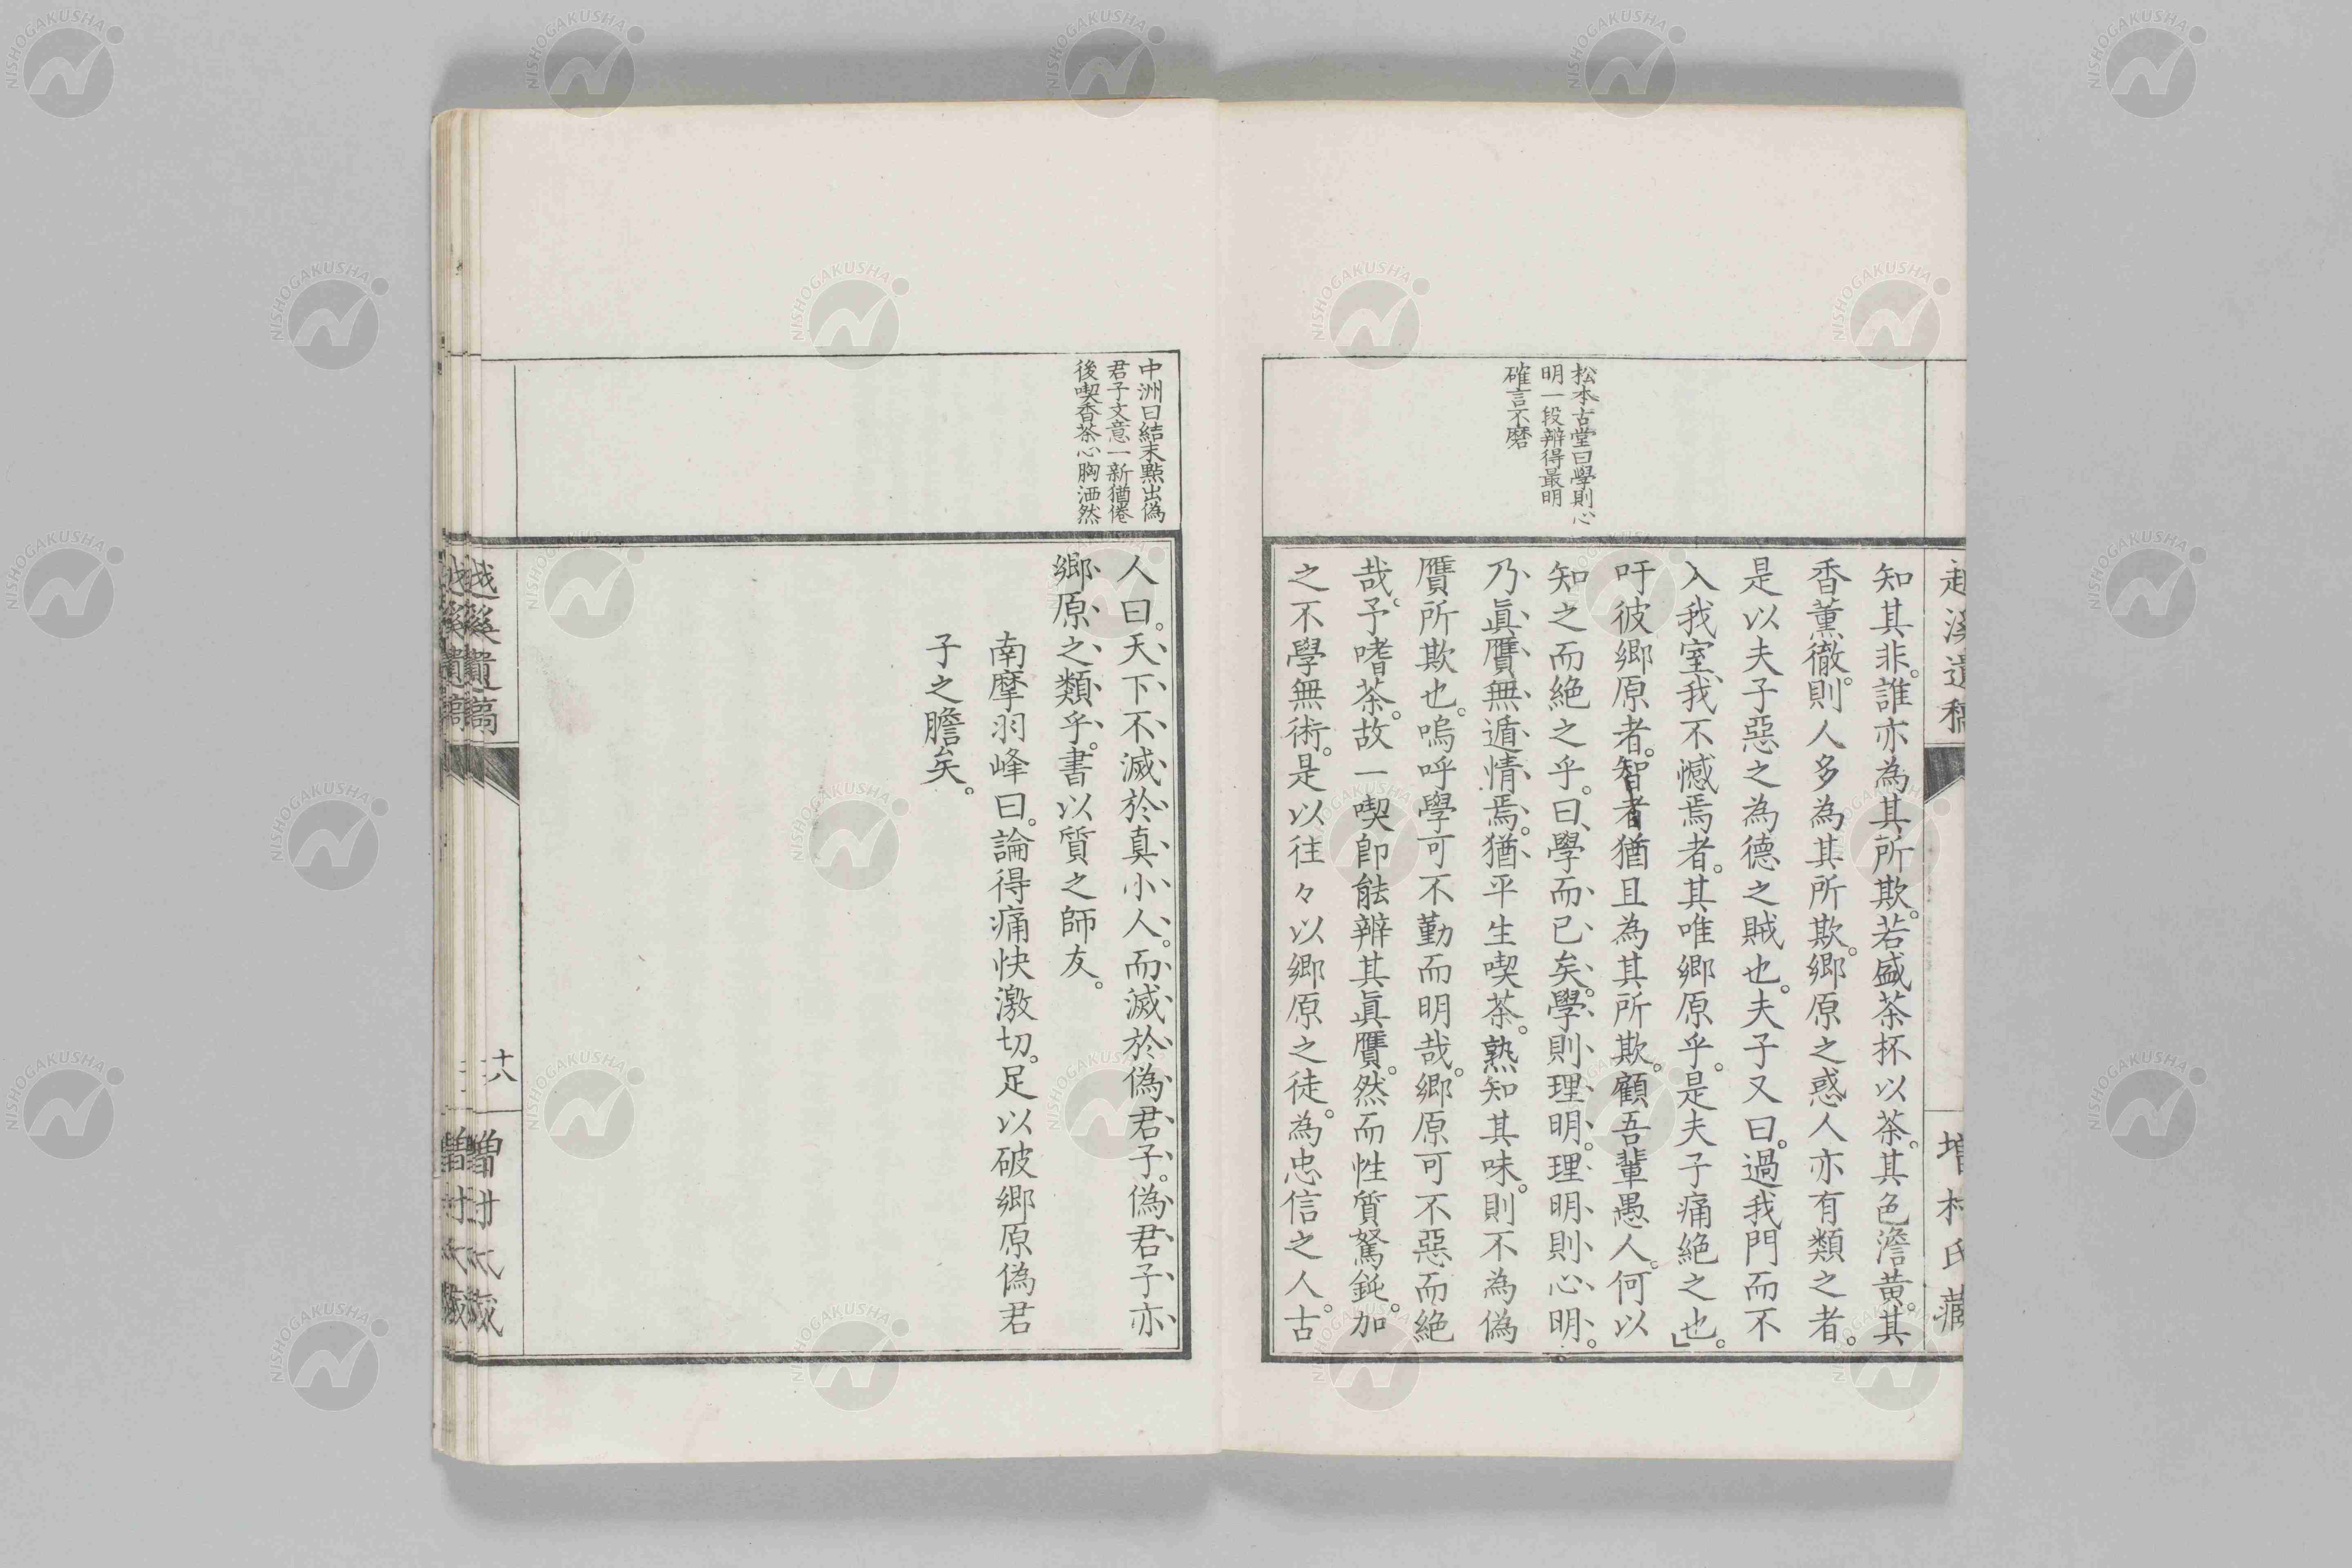 越溪遺稿
增村氏藏
松本古堂曰學則心
明一段辨得最明
確言不磨
知其非。誰亦為其所欺。若盛茶杯以茶。其色澹黄。其
香薰徹。則人多為其所欺。鄉原之惑人亦有類之者。
是以夫子惡之為德之賊也。夫子又曰。過我門而不
入我室、我不憾焉者。其唯鄉原乎。是夫子痛絕之也。」
吁彼鄉原者。智者猶且為其所欺。顧吾輩愚人。何以
知之而絕之乎。曰、學而已矣。學則理明。理明則心明。
乃眞贋無遁情焉。猶平生喫茶。熟知其味。則不為偽
贋所欺也。嗚呼學可不勤而明哉。鄉原可不惡而絕
哉。予嗜茶。故一喫即能辨其眞贋。然而性質駑鈍。加
之不學無術。是以往々以鄉原之徒。為忠信之人。古
中洲曰結末點出偽
君子文意一新猶倦
後喫香茶心胸洒然
人曰。天下不滅於真小人。而滅於偽君子。偽君子亦
鄉原之類乎。書以質之師友。
南摩羽峰曰。論得痛快激切。足以破鄉原偽君
子之膽矣。
越溪遺稿
十八
增村氏藏
NISHOGAKUSHA